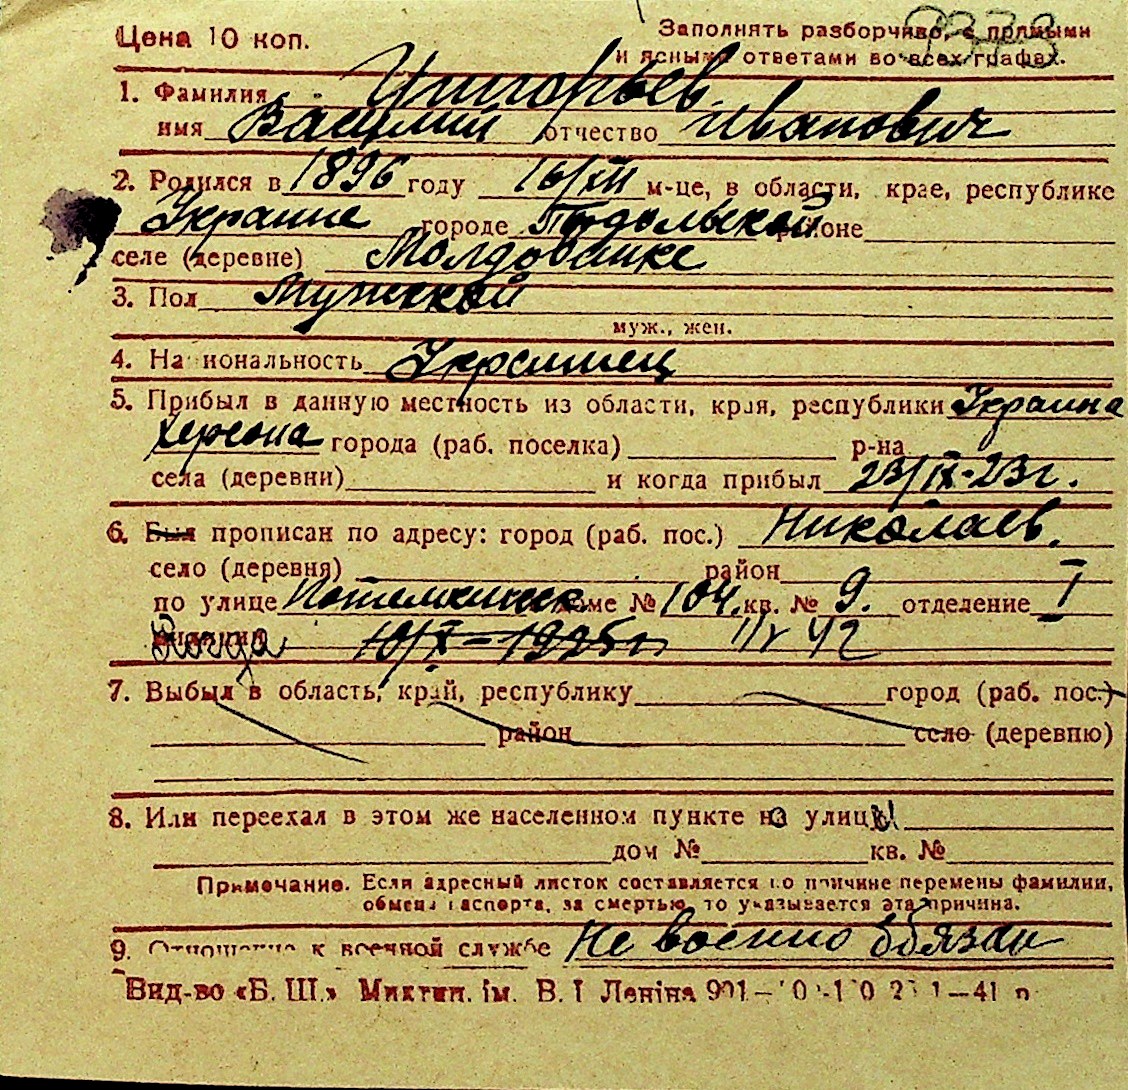 Цена 10 коп.
Заполнять разборчиво, с прямыми
и ясными ответами во всех графах.
1. Фамилия Григорьев
имя Василий отчество Иванович
2. Родился в 1896 году 16/XII м-це, в области, крае, республике
Украине городе Подольской районе
селе (деревне) Молдованке
3. Пол Мужской
муж., жен.
4. Национальность Украинец
5. Прибыл в данную местность из области, края, республики Украина
Херсона города (раб. поселка) р-на
села (деревни) и когда прибыл 23/IX-23г.
6. Был прописан по адресу: город (раб. пос.) Николаев.
село (деревня) район
по улице Потемкинск доме № 104. кв. № 9. отделение I
Когда 10/X-1925г. 42
7. Выбыл в область, край, республику город (раб. пос.)
район село (деревню)
8. Или переехал в этом же населенном пункте на улицы
дом № кв. №
Примечание. Если адресный листок составляется по причине перемены фамилии,
обмена паспорта, за смертью, то указывается эта причина.
9. Отношение к военной службе Не военно обязан
Вид-во «Б. Ш.» Микт ім. В. І Леніна 41